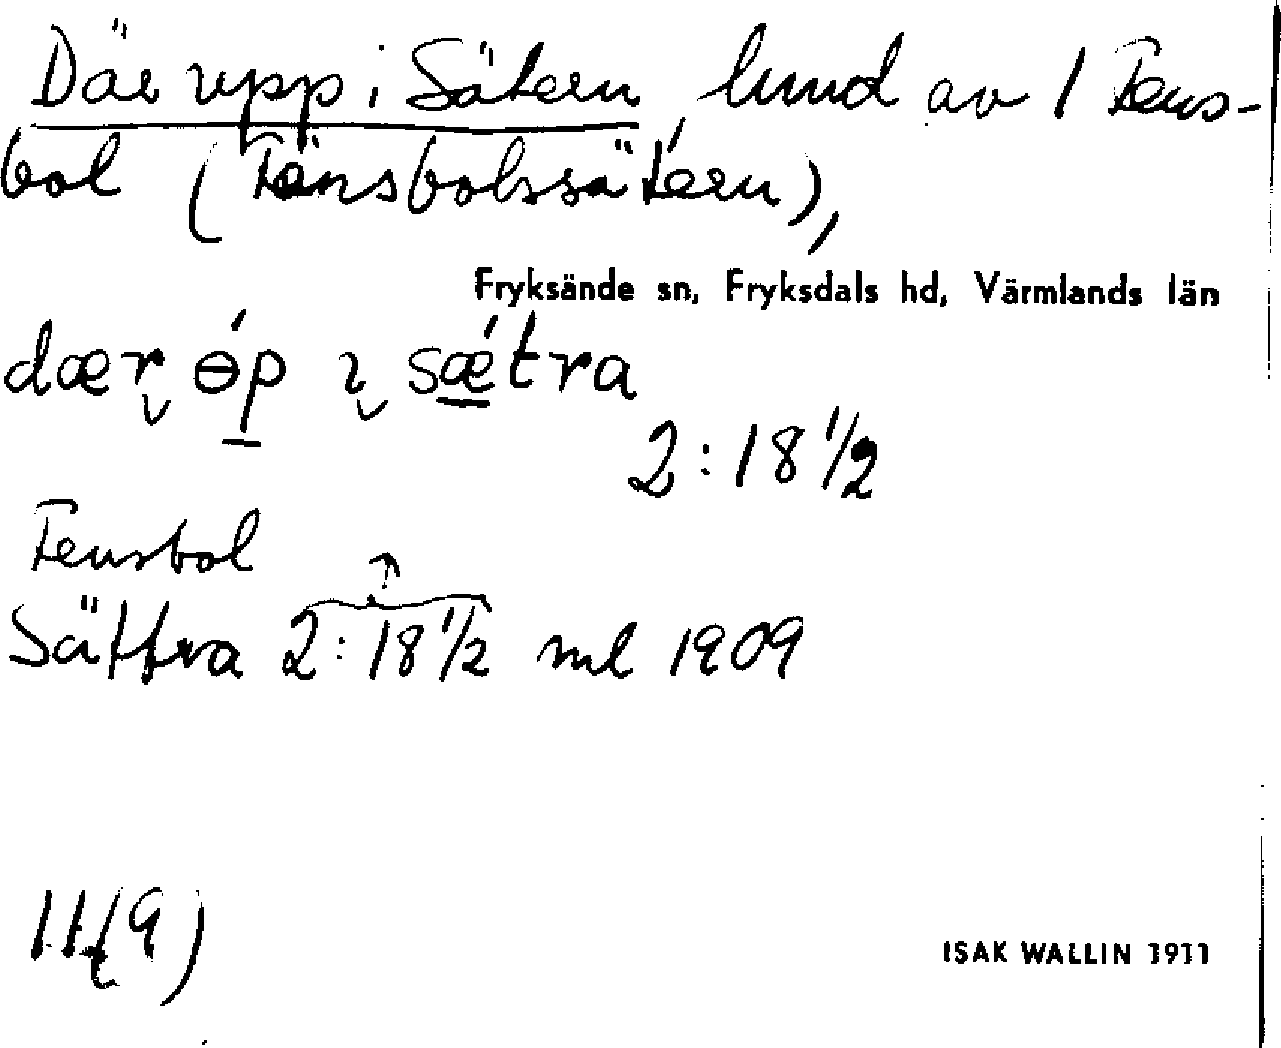 Där upp i Sätern, lund av 1 Tens-
bol (Tänsbolssätern),
Fryksände sn, Fryksdals hd, Värmlands län
dær ɵ́p ɩ sǽtra
2:18 1/2
Tensbol
Sättra 2:18 1/2 ml 1909
11(9)
ISAK WALLIN 1911